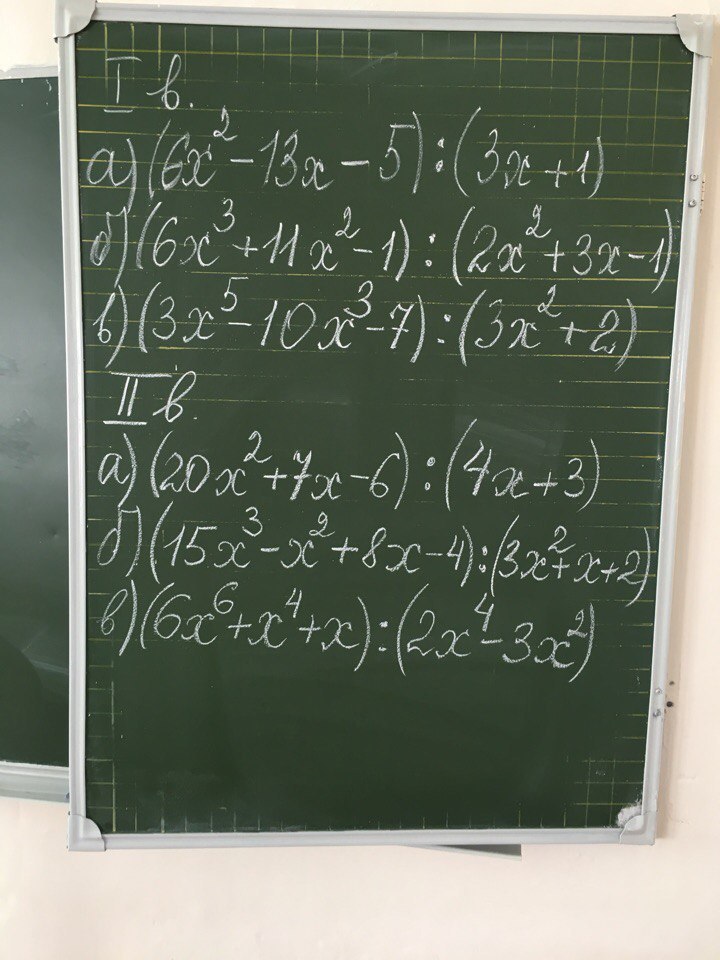 I в.
а) (6x² - 13x - 5) : (3x + 1)
б) (6x³ + 11x² - 1) : (2x² + 3x - 1)
в) (3x⁵ - 10x³ - 7) : (3x² + 2)
II в.
а) (20x² + 7x - 6) : (4x + 3)
б) (15x³ - x² + 8x - 4) : (3x² + x + 2)
в) (6x⁶ + x⁴ + x) : (2x⁴ - 3x²)